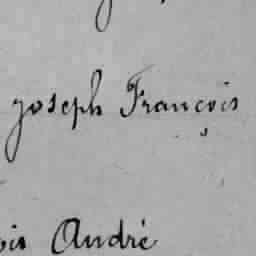 joseph François
André